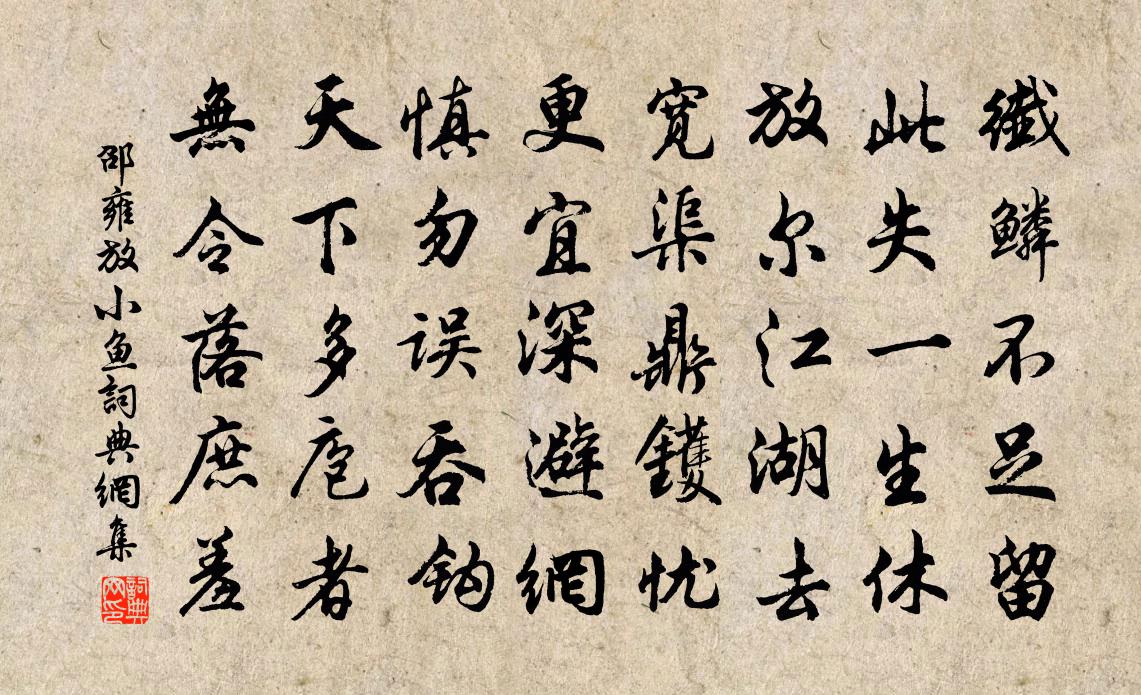 纖鱗不足留
此失一生休
放尔江湖去
寛渠鼎鑊忧
更宜深避網
慎勿误吞钩
天下多庖者
無令落庶羞
邵雍放小鱼詞典網集
詞典網印